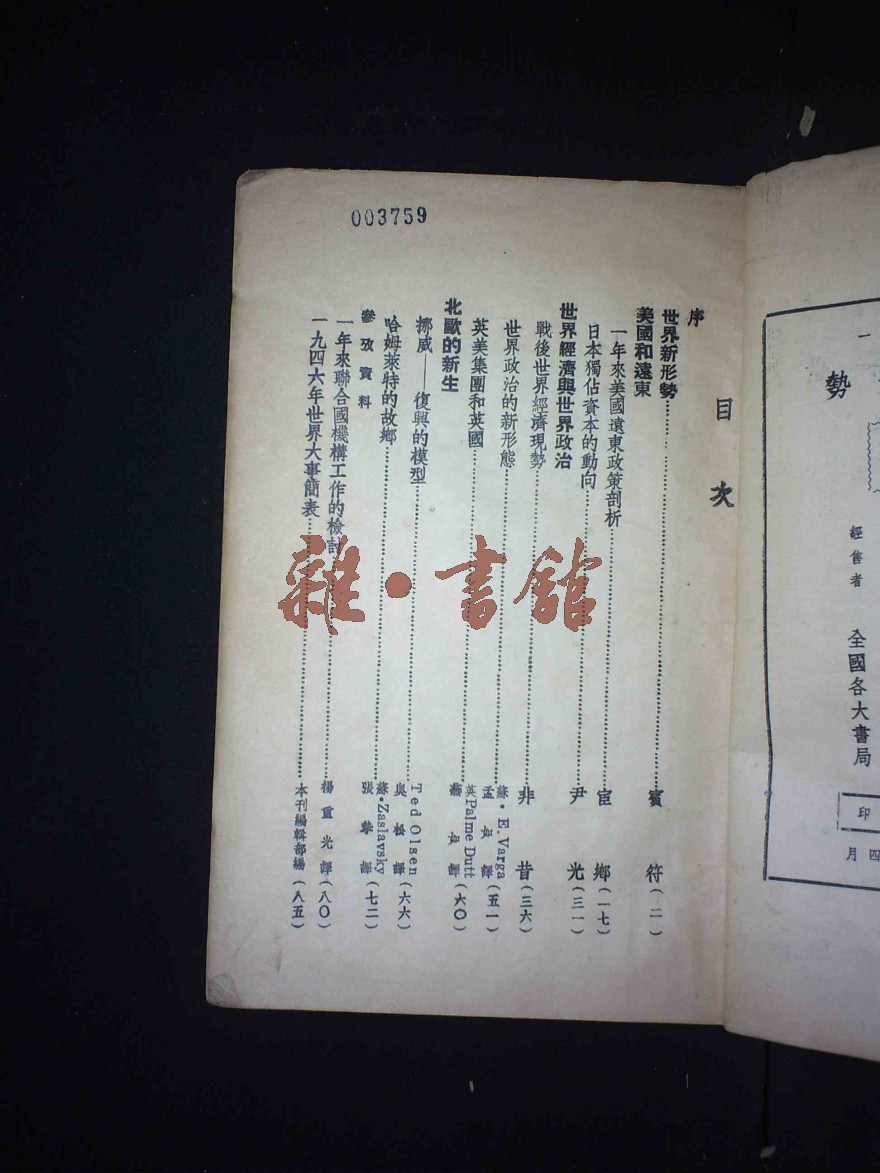 003759
目次
序
世界新形勢……賓符(二)
美國和遠東
一年來美國遠東政策剖析……宦鄉(一七)
日本獨佔資本的動向……尹光(三一)
世界經濟與世界政治
戰後世界經濟現勢……非昔(三六)
世界政治的新形態……蘇·E. Varga 孟伊譯(五一)
英美集團和英國……英Palme Dutt 伊譯(六〇)
北歐的新生
挪威——復興的模型……Ted Olsen 吳 譯(六六)
哈姆萊特的故鄉……蘇·Zaslavsky 張 譯(七二)
參攷資料
一年來聯合國機構工作的檢討……楊重光譯(八〇)
一九四六年世界大事簡表……本刊編輯部編(八五)
雜·書館
勢
經售者 全國各大書局
印
四月